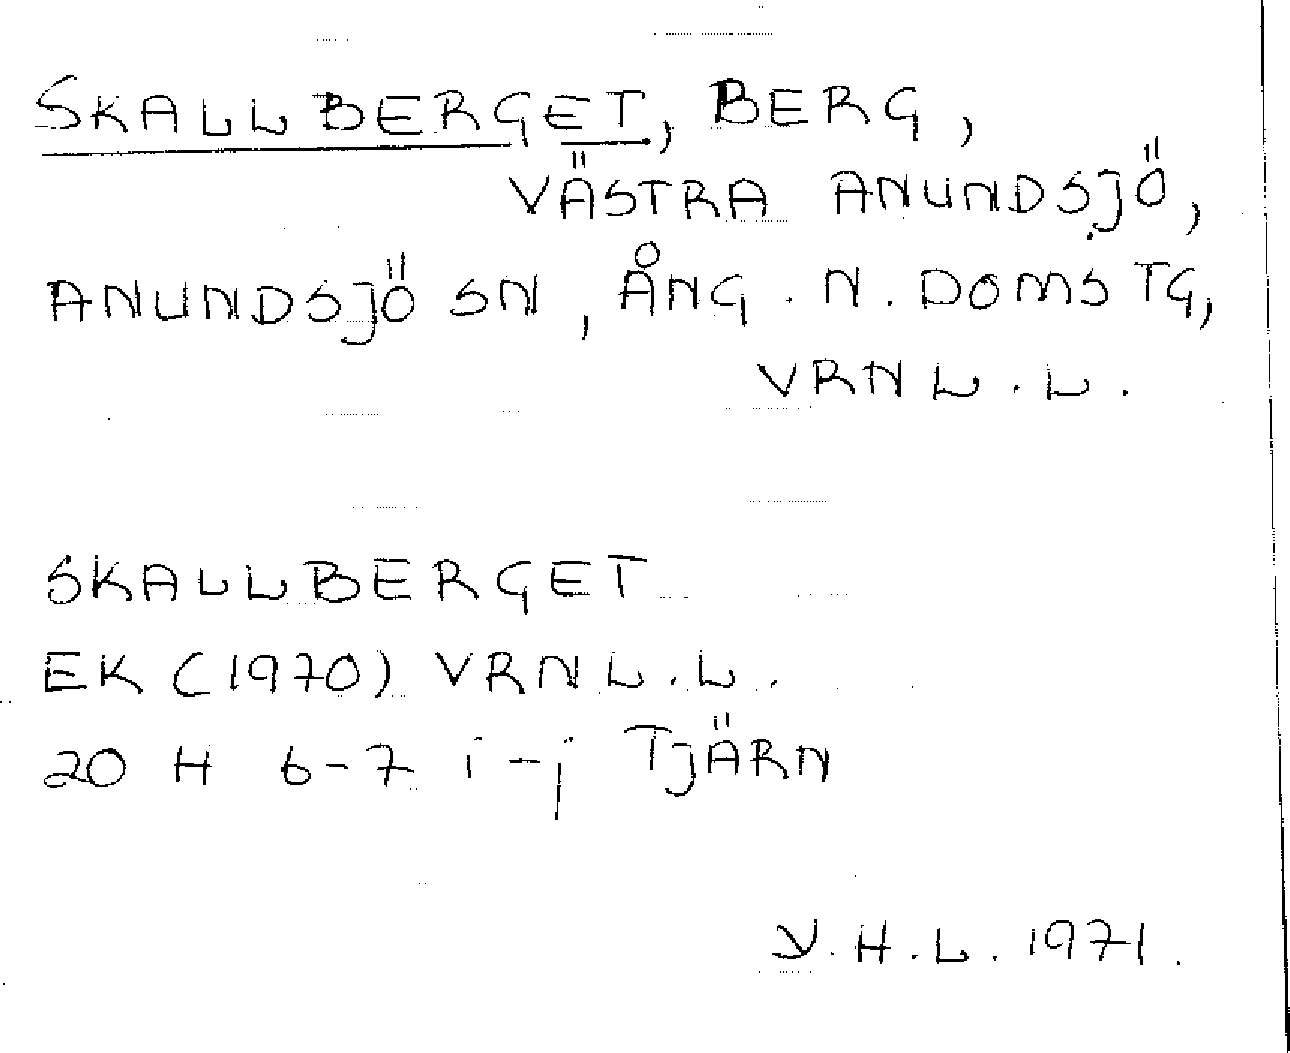 SKALLBERGET, BERG,
VÄSTRA ANUNDSJÖ,
ANUNDSJÖ SN, ÅNG. N. DOMSTG,
VRNL.L.
SKALLBERGET
EK (1970) VRNL.L.
20 H 6-7 i-j TJÄRN
Y.H.L. 1971.